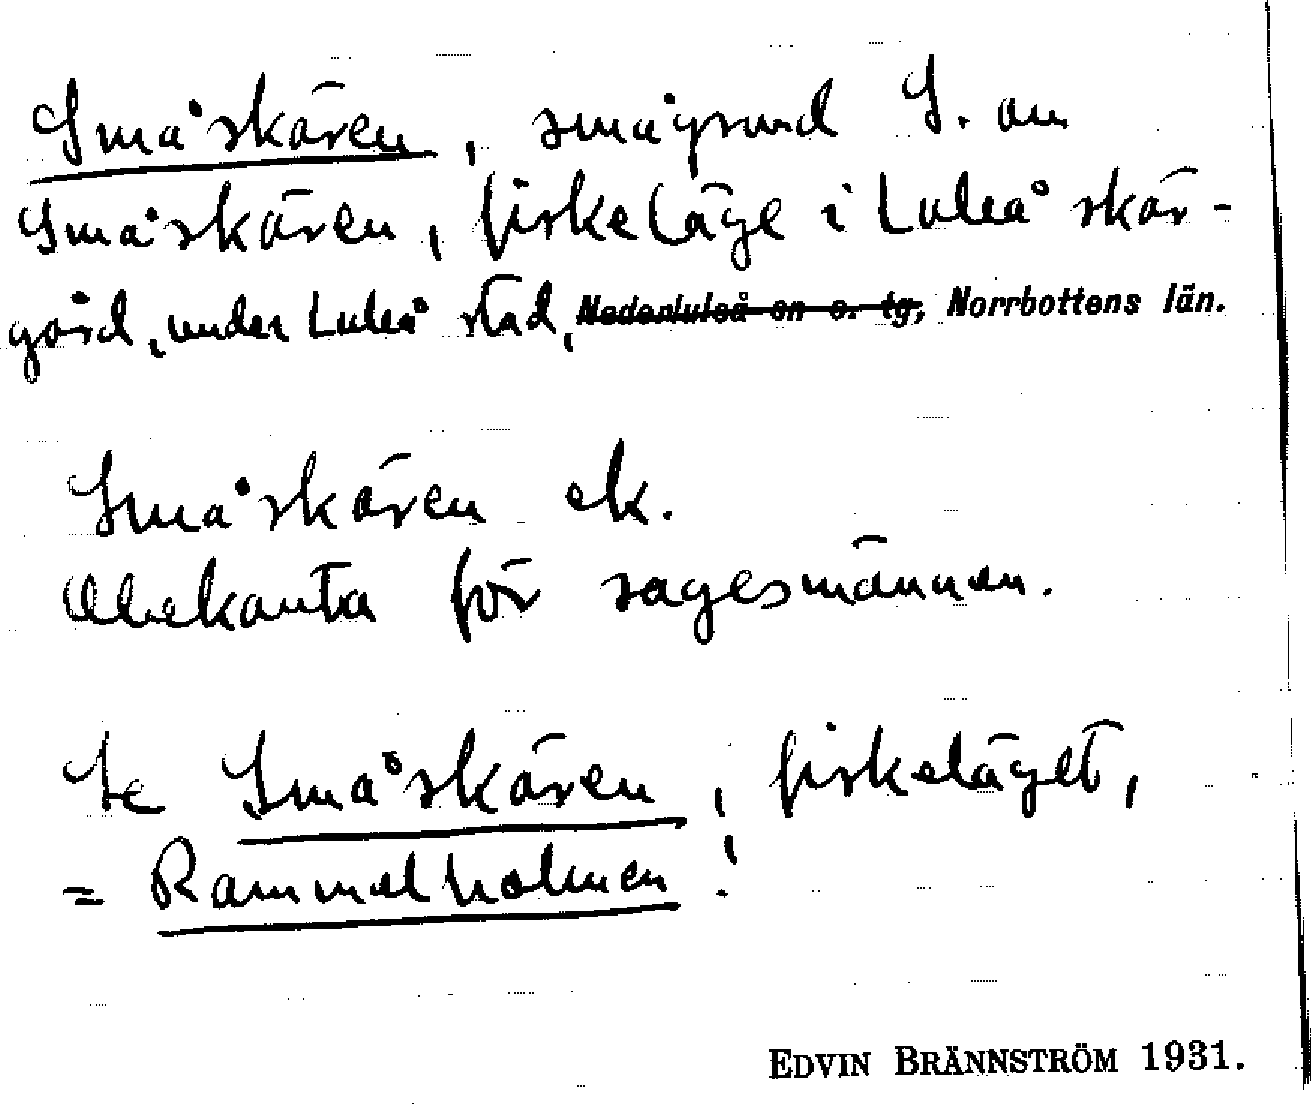 Småskären, smågrund S. om
Småskären, fiskeläge i Luleå skär-
gård, under Luleå stad, Nederluleå sn o. tg, Norrbottens län.
Småskären ek.
Obekanta för sagesmännen.
Se Småskären, fiskeläget,
= Rammelholmen!
EDVIN BRÄNNSTRÖM 1931.